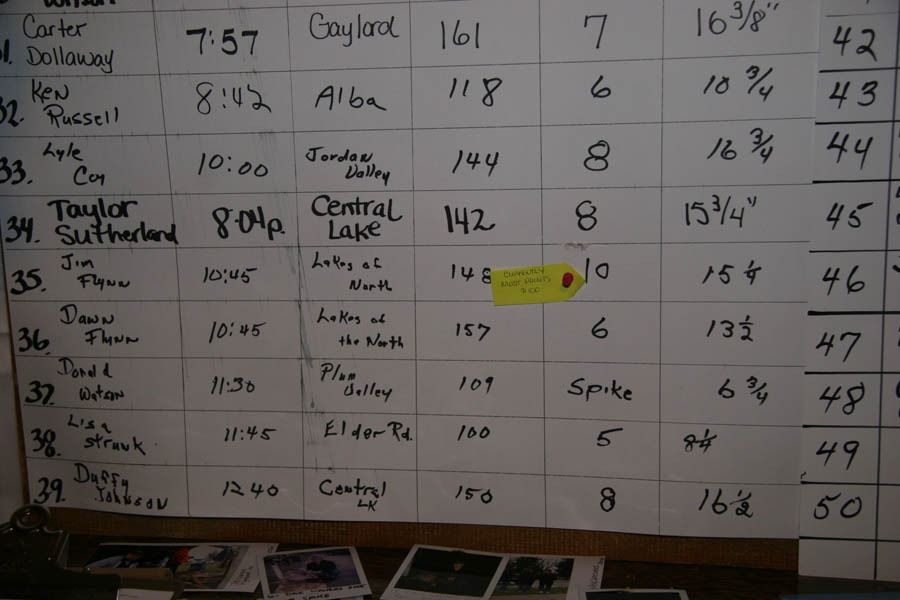 Carter Dollaway 7:57 Gaylord 161 7 16 3/8" 42
32. Ken Russell 8:42 Alba 118 6 10 3/4 43
33. Lyle Coy 10:00 Jordan Valley 144 8 16 3/4 44
34. Taylor Sutherland 8:04p. Central Lake 142 8 15 3/4" 45
35. Jim Flynn 10:45 Lakes of North 148 10 15 1/4 46
CURRENTLY
MOST POINTS
$100
36. Dawn Flynn 10:45 Lakes of the North 157 6 13 1/2 47
37. Donald Watson 11:30 Plum Valley 109 Spike 6 3/4 48
38. Lisa Strunk 11:45 Elder Rd. 100 5 8 1/4 49
39. Duffy Johnson 12 40 Central LK 150 8 16 1/2 50